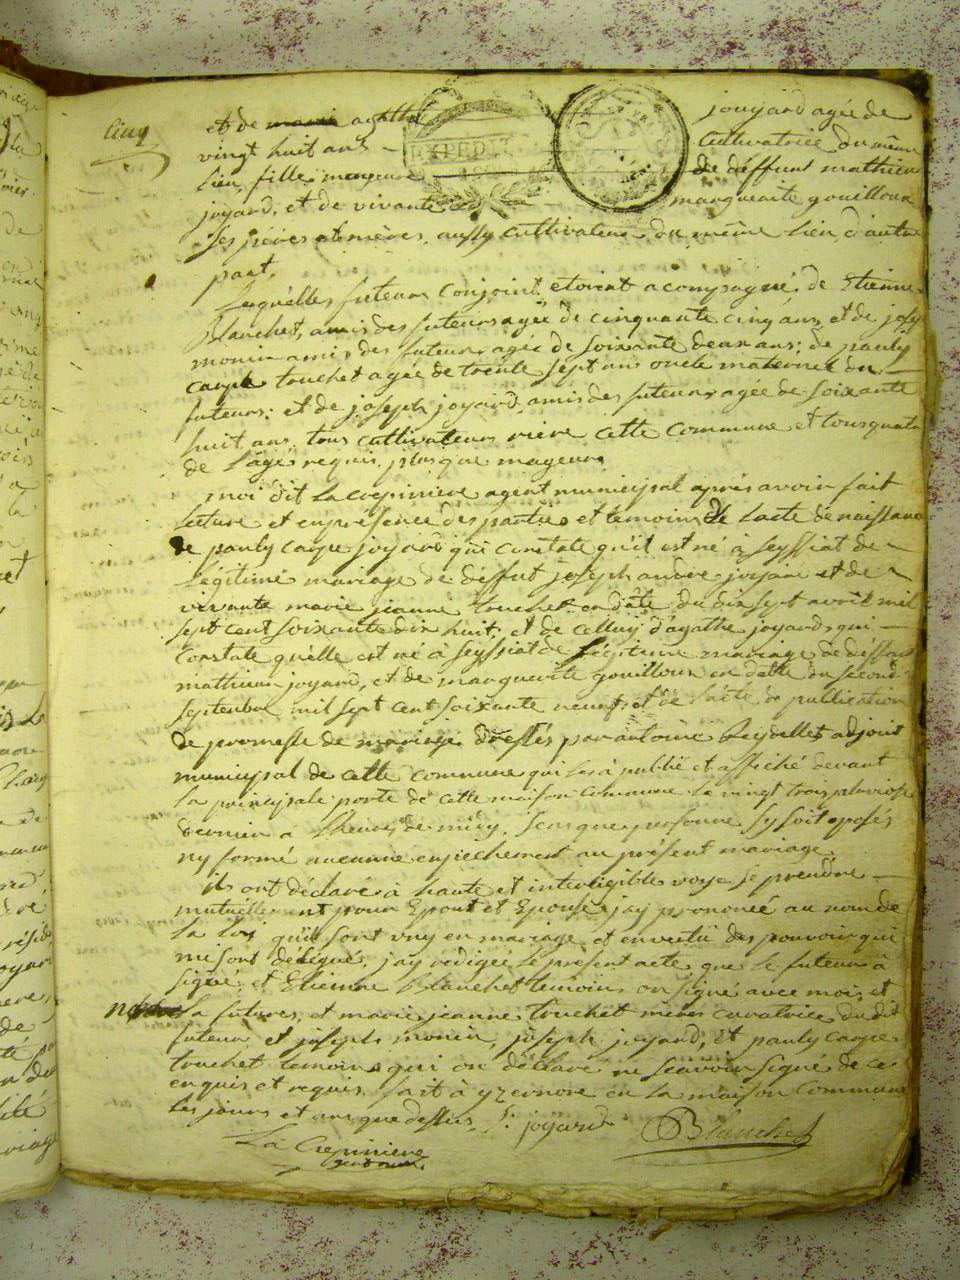 Cinq
et de marie agathe joujard agée de
vingt huit ans cultivatrice du même
lieu, fille mageure de déffunt mathieu
joyard, et de vivante marguerite gouilloux
ses pères et mères aussy cultivateur du même lieu d'autre
part.
Lesquélles futeurs conjoint etoient acompagné de Etienne
Blanchet, amis des futeurs agée de cinquante cinq ans, et de josep
monin amis des futeurs agée de soixante deux ans; de pauly
carpe truchet agée de trente sept ans oncle maternel du
futeurs; et de joseph joyard, amis des futeurs agée de soixante
huit ans, tous cultivateurs rière cette commune et tousquatre
de l'agés requis, plus que mageurs
moi dit La crepiniere agent municipal après avoir fait
lecture et en présence des parties et temoins de lacte de naissance
de pauly carpe joyard qui constate qu'il est né à seyssiat de
Légitime mariage de déffut joseph andré joyard et de
vivante marie jeanne truchet en date du dix sept avril mil
sept cent soixante dix huit, et de celluy d'agathe joyard, qui
constate quélle est né à seyssiat de Légitime mariage de déffunt
mathieu joyard, et de marguerite gouilloux en datte du second
septembre mil sept cent soixante neuf, et de l'acte de publication
de promesse de mariage dressés par antoine Reydellet adjoint
municipal de cette commune qui les à publié et affiché devant
la principale porte de cette maison commune le vingt trois pluviose
dernier a l'heures de midy, sens que personne sy soit oposés
ny formé aucunne enpiechement au présent mariage.
ils ont déclaré à haute et interligibles voye se prendre
mutuéllement pour Epout et Epouse, jay prononcé au nom de
la loi qu'il sont uny en mariage et en vertu des pouvoir qui
mi sont délégué, j'ay rédigée le present acte que le futeur à
signé, et Etienne Blanchet temoins on signé avec moi, et
la futures, et marie jeanne truchet mère curatrice du dit
futeur, et joseph monin, joseph joyard, et pauly carpe
truchet temoins qui on déclaré ne scavoir signé de ce
enquis et requis, fait à yzernore en la maison commune
les jours et ans que dessus, joyard Blanchet
La Crepiniere